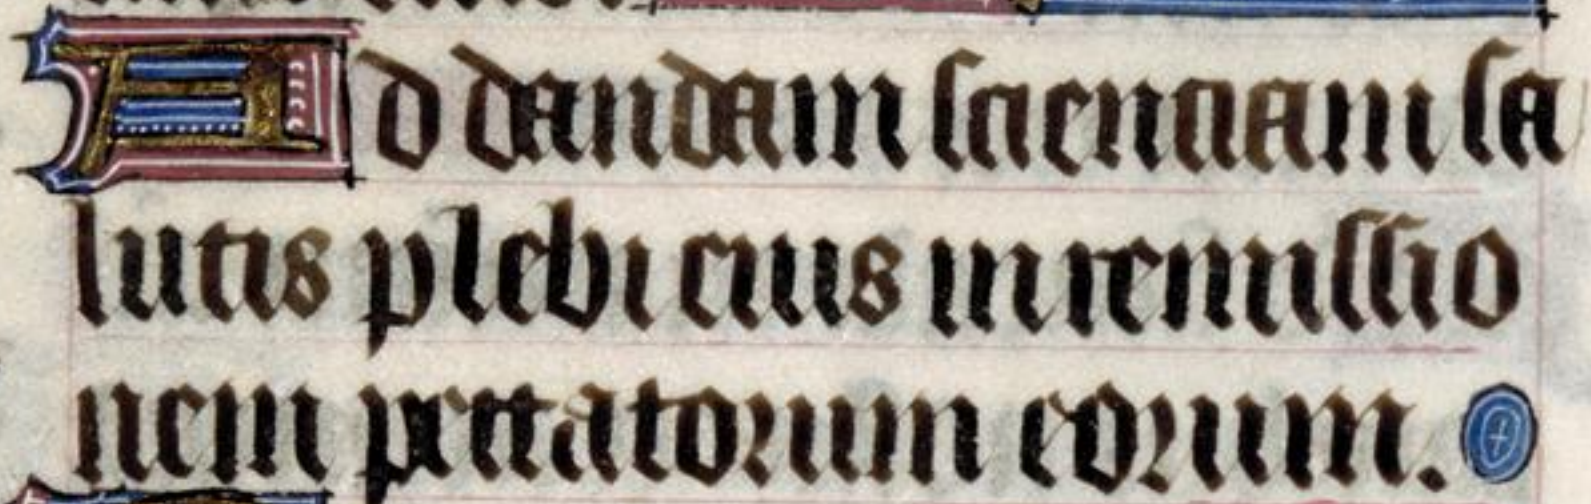 Ad dandam scientiam sa
lutis plebi eius in remissio
nem peccatorum eorum.